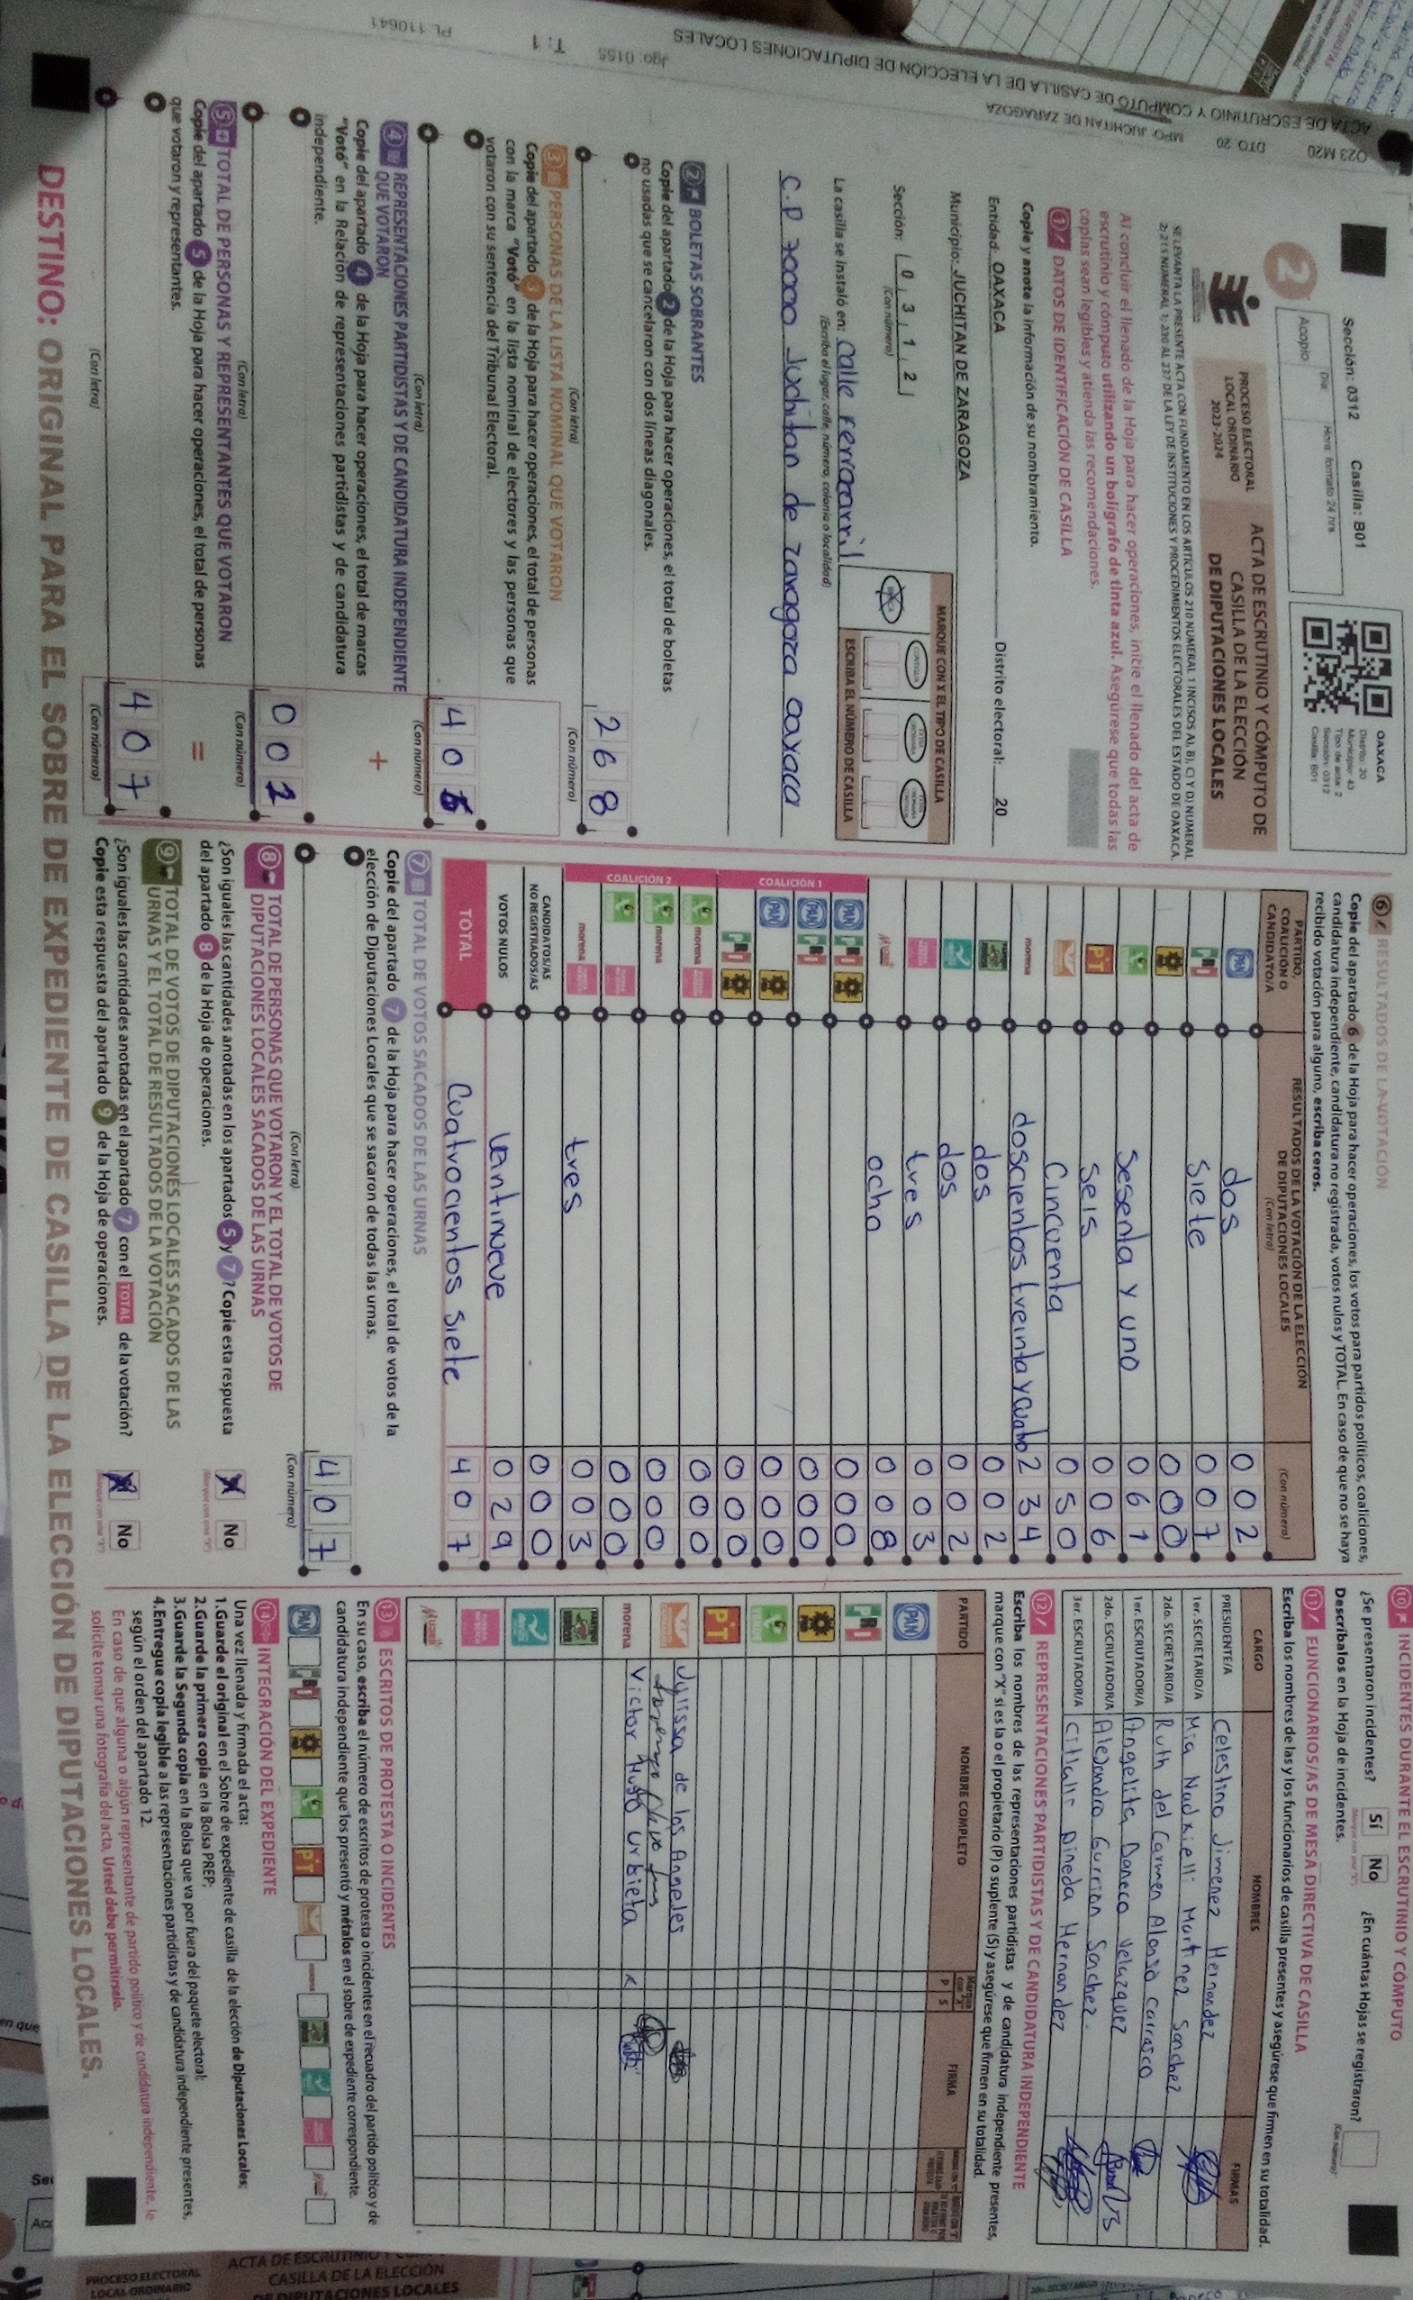 Sección: 0312 Casilla: B01
Día Hora: formato 24 hrs
Acopio
OAXACA
Distrito: 20
Municipio: 43
Tipo de acta: 2
Sección: 0312
Casilla: B01
2
PROCESO ELECTORAL
LOCAL ORDINARIO
2023-2024
ACTA DE ESCRUTINIO Y CÓMPUTO DE
CASILLA DE LA ELECCIÓN
DE DIPUTACIONES LOCALES
SE LEVANTA LA PRESENTE ACTA CON FUNDAMENTO EN LOS ARTÍCULOS 210 NUMERAL 1 INCISOS A), B), C) Y D) NUMERAL
2; 215 NUMERAL 1; 230 AL 237 DE LA LEY DE INSTITUCIONES Y PROCEDIMIENTOS ELECTORALES DEL ESTADO DE OAXACA.
Al concluir el llenado de la Hoja para hacer operaciones, inicie el llenado del acta de
escrutinio y cómputo utilizando un bolígrafo de tinta azul. Asegúrese que todas las
copias sean legibles y atienda las recomendaciones.
1 DATOS DE IDENTIFICACIÓN DE CASILLA
Copie y anote la información de su nombramiento.
Entidad: OAXACA Distrito electoral: 20
Municipio: JUCHITAN DE ZARAGOZA
Sección: 0 3 1 2
(Con número)
MARQUE CON X EL TIPO DE CASILLA
ESCRIBA EL NÚMERO DE CASILLA
La casilla se instaló en: Calle ferrocarril
(Escriba el lugar, calle, número, colonia o localidad)
C.P 70000 Juchitan de zaragoza oaxaca
2 BOLETAS SOBRANTES
Copie del apartado 2 de la Hoja para hacer operaciones, el total de boletas
no usadas que se cancelaron con dos líneas diagonales.
268
(Con letra) (Con número)
3 PERSONAS DE LA LISTA NOMINAL QUE VOTARON
Copie del apartado 3 de la Hoja para hacer operaciones, el total de personas
con la marca "Votó" en la lista nominal de electores y las personas que
votaron con su sentencia del Tribunal Electoral.
405
(Con letra) (Con número)
4 REPRESENTACIONES PARTIDISTAS Y DE CANDIDATURA INDEPENDIENTE
QUE VOTARON
+
Copie del apartado 4 de la Hoja para hacer operaciones, el total de marcas
"Votó" en la Relación de representaciones partidistas y de candidatura
independiente.
002
(Con letra) (Con número)
5 TOTAL DE PERSONAS Y REPRESENTANTES QUE VOTARON
=
Copie del apartado 5 de la Hoja para hacer operaciones, el total de personas
que votaron y representantes.
407
(Con letra) (Con número)
6 RESULTADOS DE LA VOTACIÓN
Copie del apartado 6 de la Hoja para hacer operaciones, los votos para partidos políticos, coaliciones,
candidatura independiente, candidatura no registrada, votos nulos y TOTAL. En caso de que no se haya
recibido votación para alguno, escriba ceros.
PARTIDO, COALICIÓN O CANDIDATO/A
RESULTADOS DE LA VOTACIÓN DE LA ELECCIÓN
DE DIPUTACIONES LOCALES
(Con letra) (Con número)
PAN dos 002
PRI siete 007
000
sesenta y uno 061
PT seis 006
cincuenta 050
morena doscientos treinta y cuatro 234
dos 002
dos 002
tres 003
ocho 008
COALICIÓN 1
PAN PRI 000
PAN PRI 000
PAN 000
PRI 000
COALICIÓN 2
morena 000
morena 000
000
morena tres 003
CANDIDATOS/AS
NO REGISTRADOS/AS 000
VOTOS NULOS veintinueve 029
TOTAL Cuatrocientos siete 407
7 TOTAL DE VOTOS SACADOS DE LAS URNAS
Copie del apartado 7 de la Hoja para hacer operaciones, el total de votos de la
elección de Diputaciones Locales que se sacaron de todas las urnas.
407
(Con letra) (Con número)
8 TOTAL DE PERSONAS QUE VOTARON Y EL TOTAL DE VOTOS DE
DIPUTACIONES LOCALES SACADOS DE LAS URNAS
¿Son iguales las cantidades anotadas en los apartados 5 y 7? Copie esta respuesta
del apartado 8 de la Hoja de operaciones.
No
9 TOTAL DE VOTOS DE DIPUTACIONES LOCALES SACADOS DE LAS
URNAS Y EL TOTAL DE RESULTADOS DE LA VOTACIÓN
¿Son iguales las cantidades anotadas en el apartado 7 con el TOTAL de la votación?
Copie esta respuesta del apartado 9 de la Hoja de operaciones.
No
10 INCIDENTES DURANTE EL ESCRUTINIO Y CÓMPUTO
¿Se presentaron incidentes? Sí No ¿En cuántas Hojas se registraron?
Descríbalos en la Hoja de incidentes.
11 FUNCIONARIOS/AS DE MESA DIRECTIVA DE CASILLA
Escriba los nombres de las y los funcionarios de casilla presentes y asegúrese que firmen en su totalidad.
CARGO NOMBRES FIRMAS
PRESIDENTE/A Celestino Jimenez Hernandez
1er. SECRETARIO/A Mia Nadxielli Martinez Sanchez
2do. SECRETARIO/A Ruth del Carmen Alonso Carrasco
1er. ESCRUTADOR/A Angelita Doneco Velazquez
2do. ESCRUTADOR/A Alejandro Gurrion Sanchez.
3er. ESCRUTADOR/A Citlalli Pineda Hernandez
12 REPRESENTACIONES PARTIDISTAS Y DE CANDIDATURA INDEPENDIENTE
Escriba los nombres de las representaciones partidistas y de candidatura independiente presentes,
marque con "X" si es la o el propietario (P) o suplente (S) y asegúrese que firmen en su totalidad.
PARTIDO NOMBRE COMPLETO P S FIRMA
PAN
PRI
PT
Julissa de los Angeles
morena Victor Hugo Urbieta
13 ESCRITOS DE PROTESTA O INCIDENTES
En su caso, escriba el número de escritos de protesta o incidentes en el recuadro del partido político y de
candidatura independiente que los presentó y métalos en el sobre de expediente correspondiente.
PAN PRI PT morena
14 INTEGRACIÓN DEL EXPEDIENTE
Una vez llenada y firmada el acta:
1.Guarde el original en el Sobre de expediente de casilla de la elección de Diputaciones Locales;
2.Guarde la primera copia en la Bolsa PREP;
3.Guarde la Segunda copia en la Bolsa que va por fuera del paquete electoral;
4.Entregue copia legible a las representaciones partidistas y de candidatura independiente presentes,
según el orden del apartado 12.
En caso de que alguna o algún representante de partido político y de candidatura independiente, le
solicite tomar una fotografía del acta, Usted debe permitírselo.
DESTINO: ORIGINAL PARA EL SOBRE DE EXPEDIENTE DE CASILLA DE LA ELECCIÓN DE DIPUTACIONES LOCALES.
ACTA DE ESCRUTINIO Y COMPUTO DE CASILLA DE LA ELECCIÓN DE DIPUTACIONES LOCALES
023 M20 DTO. 20 MPO. JUCHITAN DE ZARAGOZA
Jgo: 0155 T: 1 PL 110641
ACTA DE ESCRUTINIO Y
CASILLA DE LA ELECCIÓN
DE DIPUTACIONES LOCALES
PROCESO ELECTORAL
LOCAL ORDINARIO